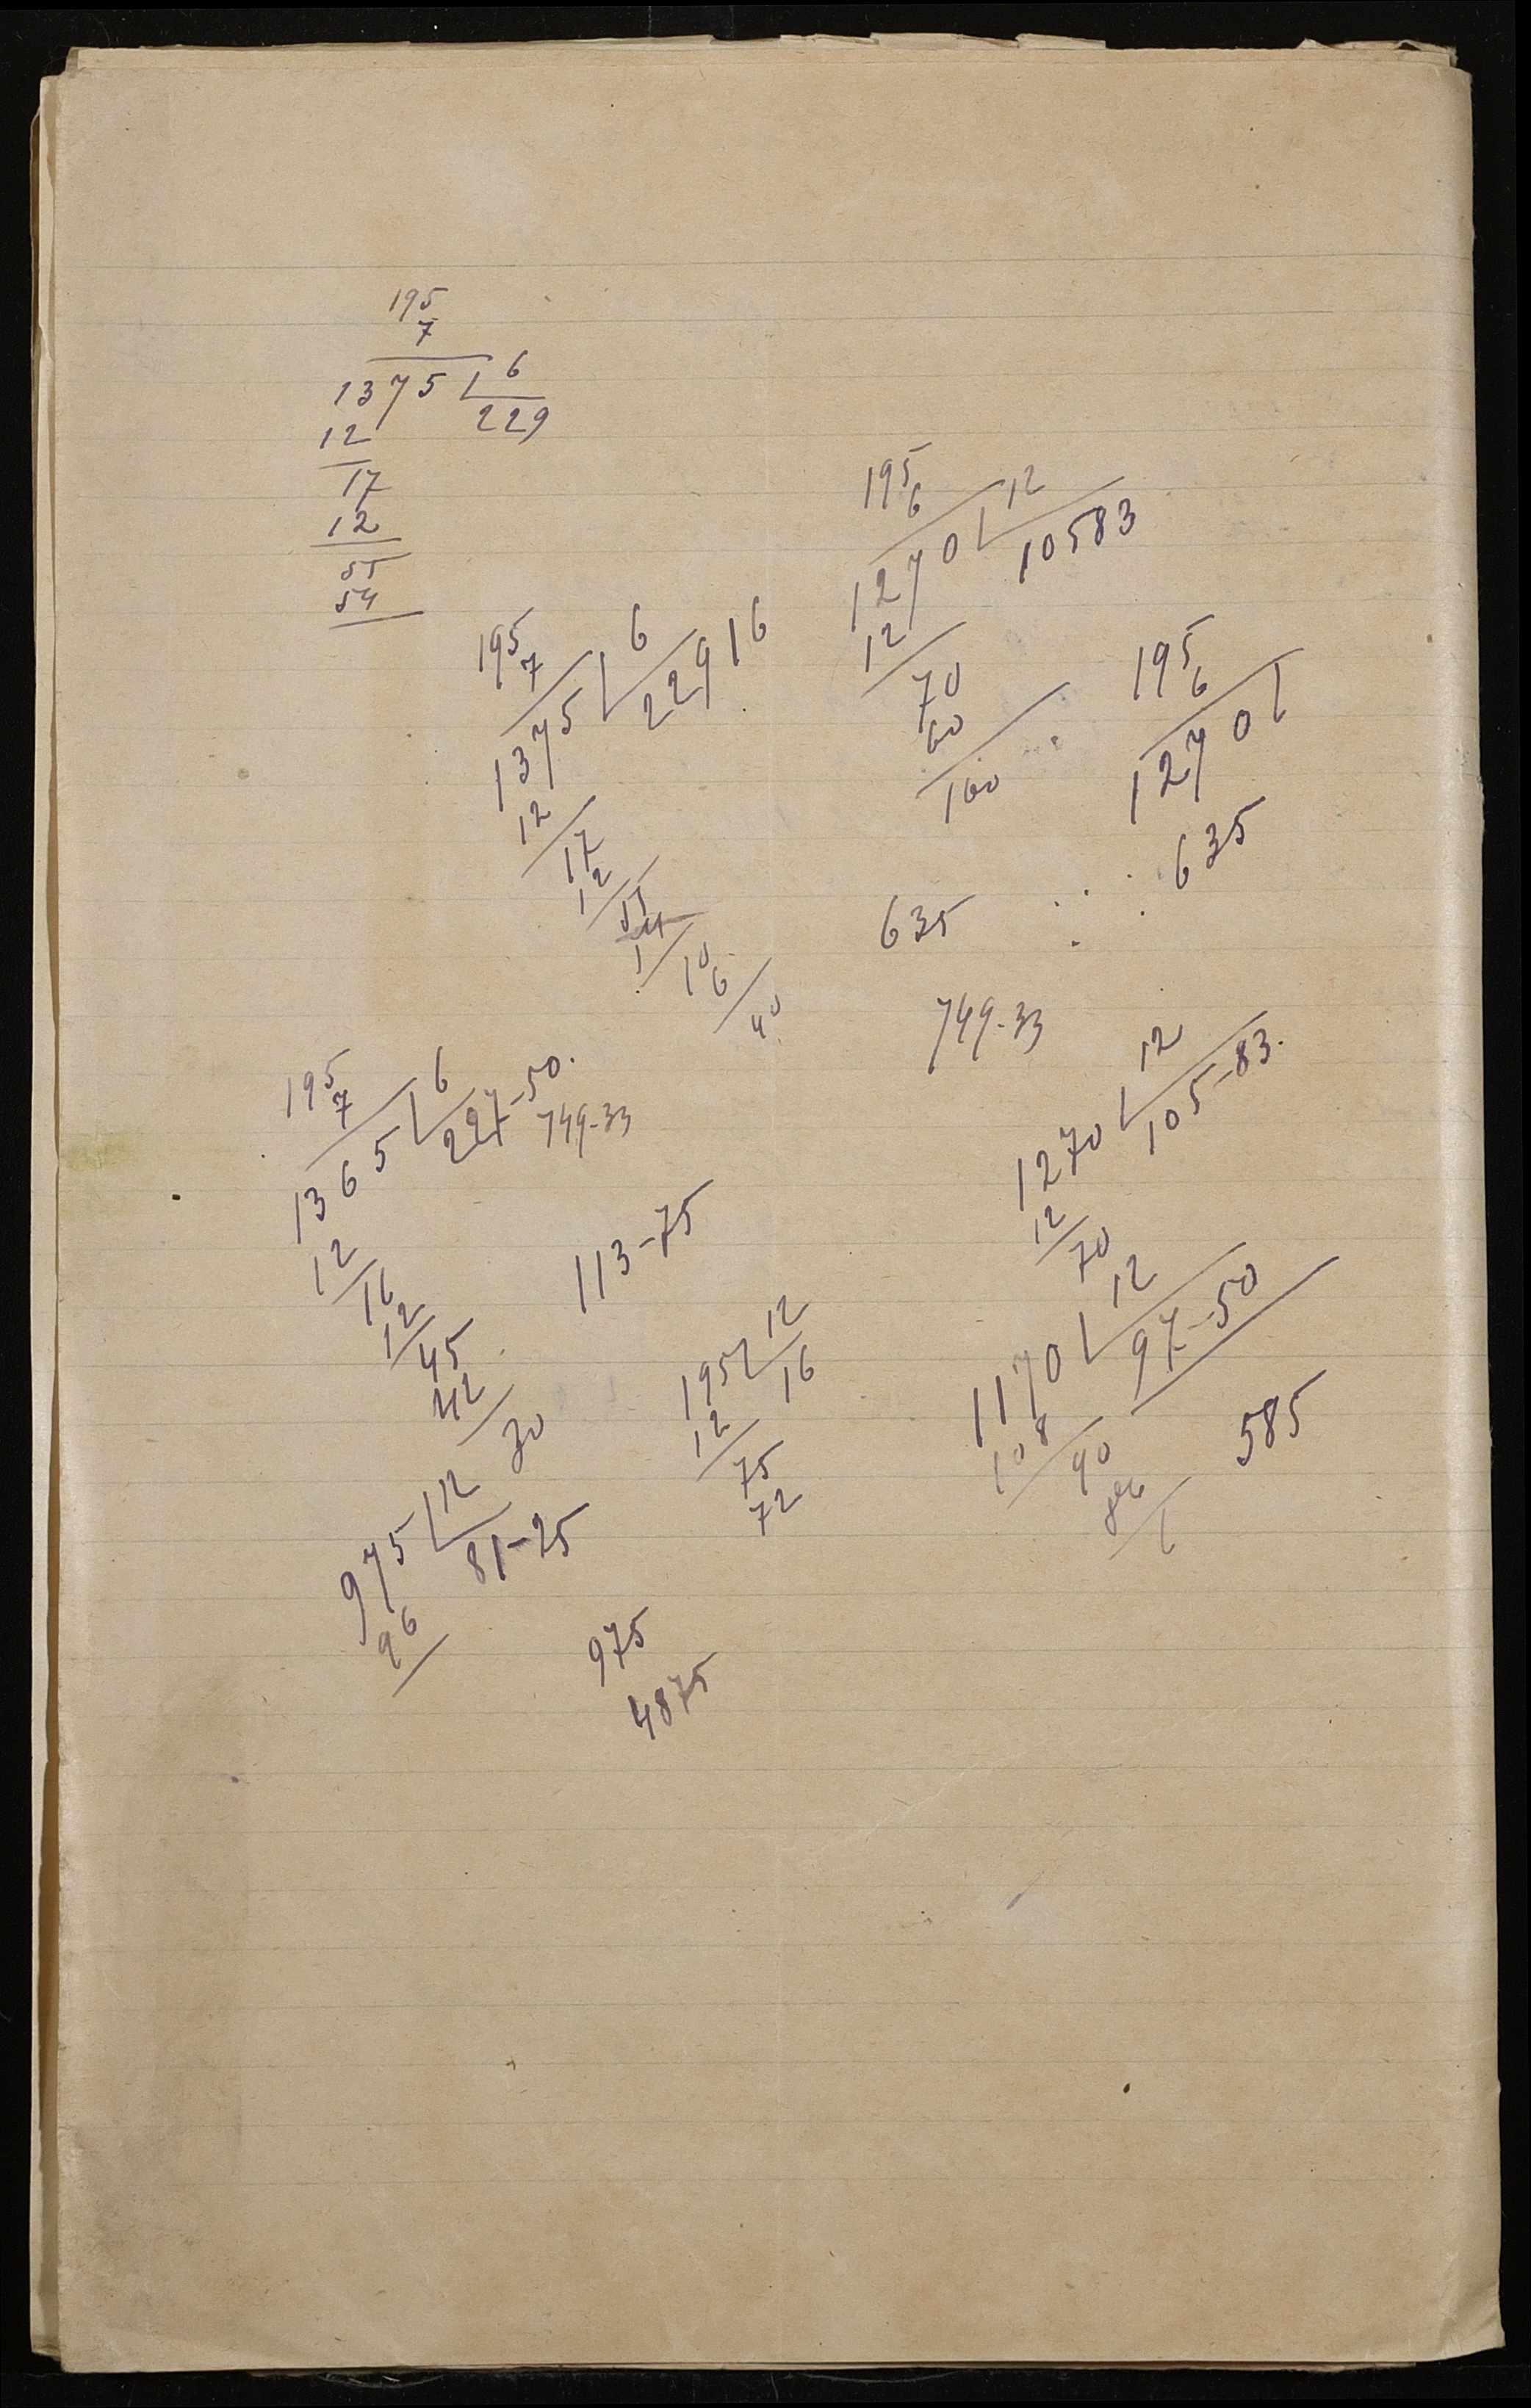 195
7
1375 | 6
229
12
17
12
55
54
195
7
1375 | 6
22916
12
17
12
55
54
1
10
6
40
195
6
1270 | 12
10583
12
70
60
100
195
6
1270 |
635
635
749-33
195
7
1365 | 6
227-50.
749-33
12
16
12
45
42
30
113-75
1270 | 12
105-83.
12
70
195 | 12
16
12
75
72
1170 | 12
97-50
108
90
585
975 | 12
81-25
96
975
4875